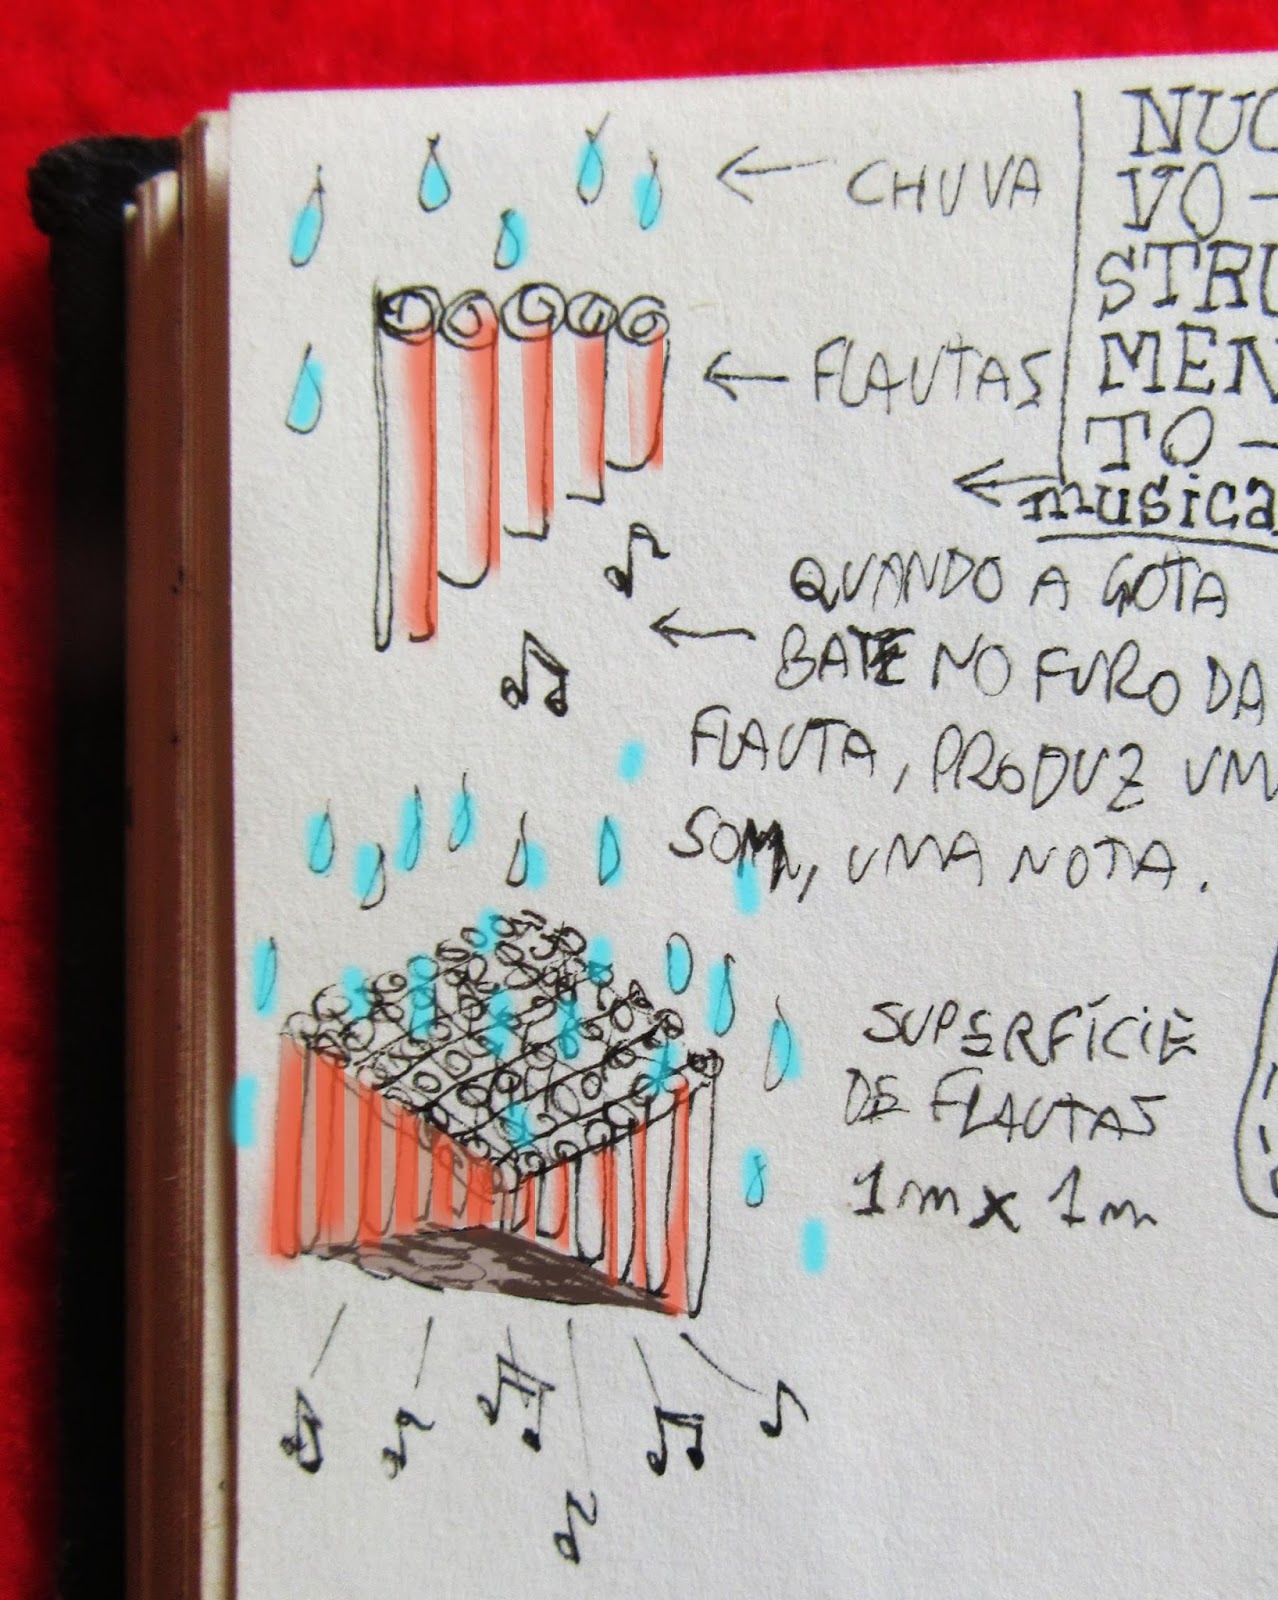 CHUVA
FLAUTAS
NUO
VO -
STRU
MEN
TO -
musica
QUANDO A GOTA
BATE NO FURO DA
FLAUTA, PRODUZ UM
SOM, UMA NOTA.
SUPERFÍCIE
DE FLAUTAS
1m x 1m